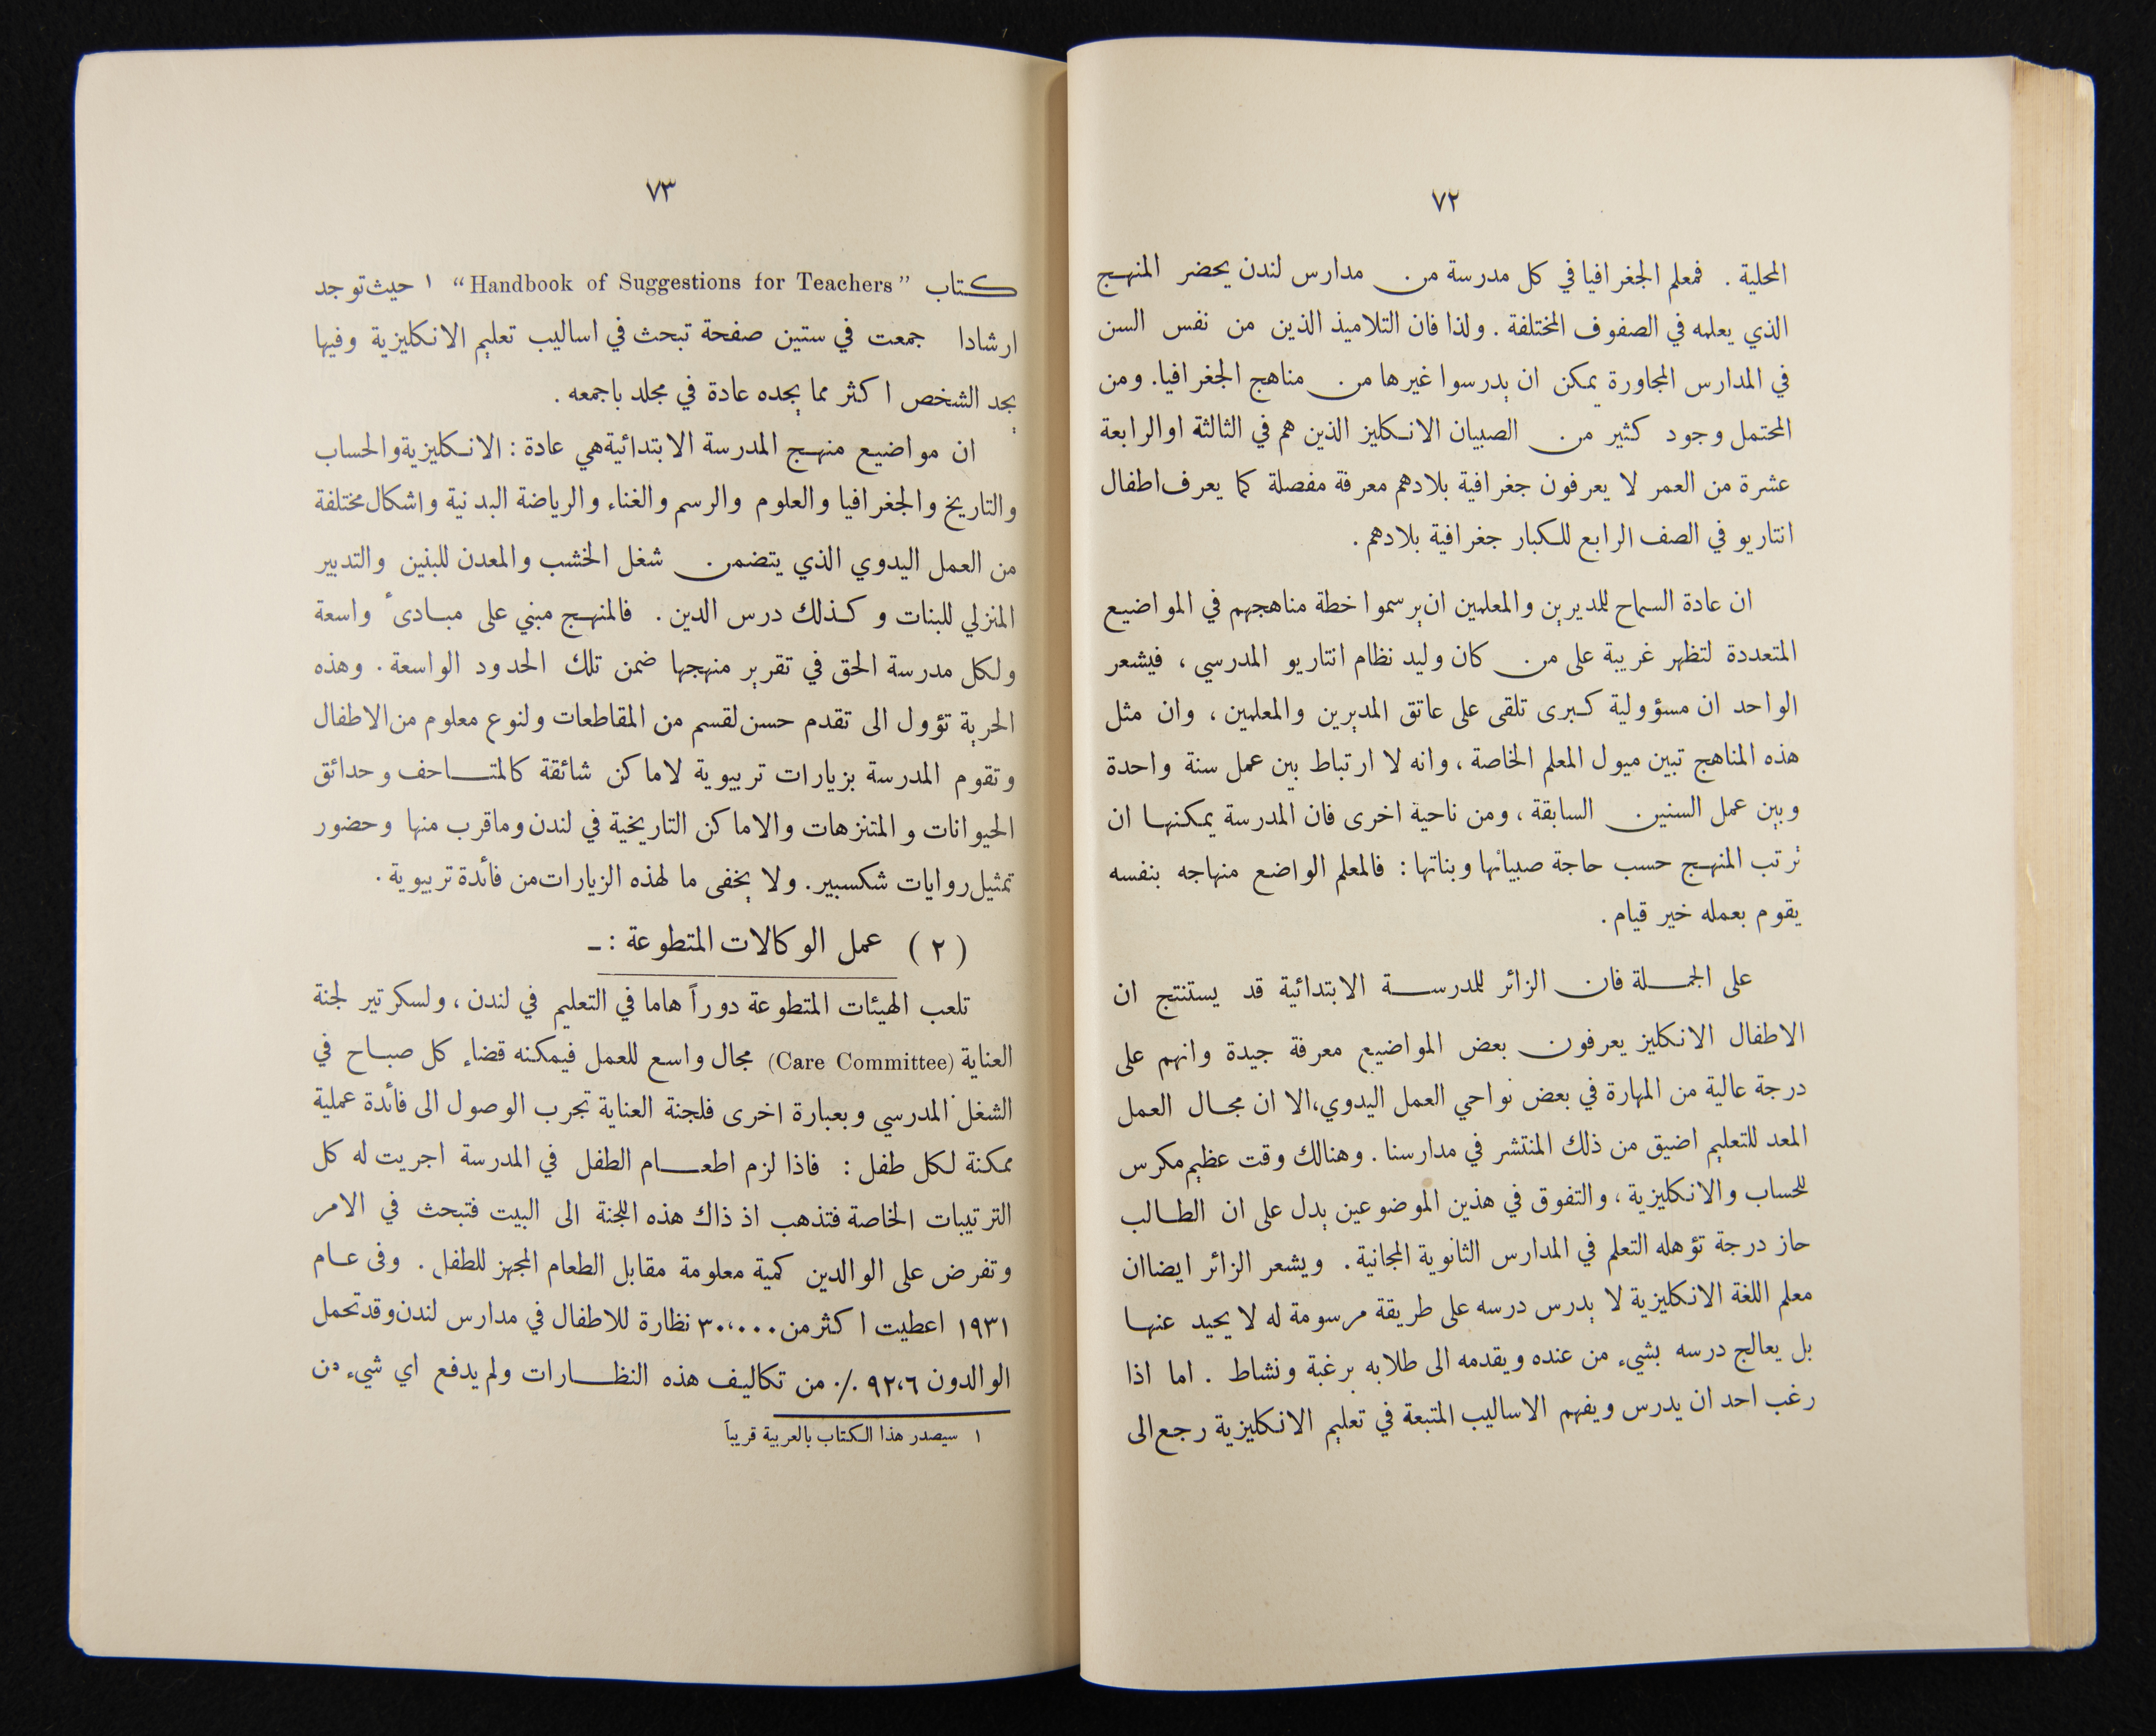 ٧٢
المحلية . فمعلم الجغرافيا في كل مدرسة من مدارس لندن يحضر المنهج
الذي يعلمه في الصفوف المختلفة . ولذا فان التلاميذ الذين من نفس السن
في المدارس المجاورة يمكن ان يدرسوا غيرها من مناهج الجغرافيا. ومن
المحتمل وجود كثير من الصبيان الانكليز الذين هم في الثالثة او الرابعة
عشرة من العمر لا يعرفون جغرافية بلادهم معرفة مفصلة كما يعرف اطفال
انتاريو في الصف الرابع للكبار جغرافية بلادهم .
ان عادة السماح للمديرين والمعلمين ان يرسموا خطة مناهجهم في المواضيع
المتعددة لتظهر غريبة على من كان وليد نظام انتاريو المدرسي ، فيشعر
الواحد ان مسؤولية كبرى تلقى على عاتق المديرين والمعلمين ، وان مثل
هذه المناهج تبين ميول المعلم الخاصة ، وانه لا ارتباط بين عمل سنة واحدة
وبين عمل السنين السابقة ، ومن ناحية اخرى فان المدرسة يمكنها ان
ترتب المنهج حسب حاجة صبيانها وبناتها : فالمعلم الواضع منهاجه بنفسه
يقوم بعمله خير قيام .
على الجملة فان الزائر للمدرسة الابتدائية قد يستنتج ان
الاطفال الانكليز يعرفون بعض المواضيع معرفة جيدة وانهم على
درجة عالية من المهارة في بعض نواحي العمل اليدوي، الا ان مجال العمل
المعد للتعليم اضيق من ذلك المنتشر في مدارسنا . وهنالك وقت عظيم مكرس
للحساب والانكليزية ، والتفوق في هذين الموضوعين يدل على ان الطالب
حاز درجة تؤهله التعلم في المدارس الثانوية المجانية . ويشعر الزائر ايضا ان
معلم اللغة الانكليزية لا يدرس درسه على طريقة مرسومة له لا يحيد عنها
بل يعالج درسه بشيء من عنده ويقدمه الى طلابه برغبة ونشاط . اما اذا
رغب احد ان يدرس ويفهم الاساليب المتبعة في تعليم الانكليزية رجع الى
٧٣
كتاب "Handbook of Suggestions for Teachers" ١ حيث توجد
ارشادا جمعت في ستين صفحة تبحث في اساليب تعليم الانكليزية وفيها
يجد الشخص اكثر مما يجده عادة في مجلد باجمعه .
ان مواضيع منهج المدرسة الابتدائية هي عادة : الانكليزية والحساب
والتاريخ والجغرافيا والعلوم والرسم والغناء والرياضة البدنية واشكال مختلفة
من العمل اليدوي الذي يتضمن شغل الخشب والمعدن للبنين والتدبير
المنزلي للبنات وكذلك درس الدين . فالمنهج مبني على مبادىء واسعة
ولكل مدرسة الحق في تقرير منهجها ضمن تلك الحدود الواسعة . وهذه
الحرية تؤول الى تقدم حسن لقسم من المقاطعات ولنوع معلوم من الاطفال
وتقوم المدرسة بزيارات تربيوية لاماكن شائقة كالمتاحف وحدائق
الحيوانات والمتنزهات والاماكن التاريخية في لندن وما قرب منها وحضور
تمثيل روايات شكسبير . ولا يخفى ما لهذه الزيارات من فائدة تربيوية .
(٢) عمل الوكالات المتطوعة : ـ
تلعب الهيئات المتطوعة دوراً هاما في التعليم في لندن ، ولسكرتير لجنة
العناية (Care Committee) مجال واسع للعمل فيمكنه قضاء كل صباح في
الشغل المدرسي وبعبارة اخرى فلجنة العناية تجرب الوصول الى فائدة عملية
ممكنة لكل طفل : فاذا لزم اطعام الطفل في المدرسة اجريت له كل
الترتيبات الخاصة فتذهب اذ ذاك هذه اللجنة الى البيت فتبحث في الامر
وتفرض على الوالدين كمية معلومة مقابل الطعام المجهز للطفل . وفى عام
١٩٣١ اعطيت اكثر من ٣٠،٠٠٠ نظارة للاطفال في مدارس لندن وقد تحمل
الوالدون ٩٢،٦ ٪ من تكاليف هذه النظارات ولم يدفع اي شيء من
١ سيصدر هذا الكتاب بالعربية قريباً